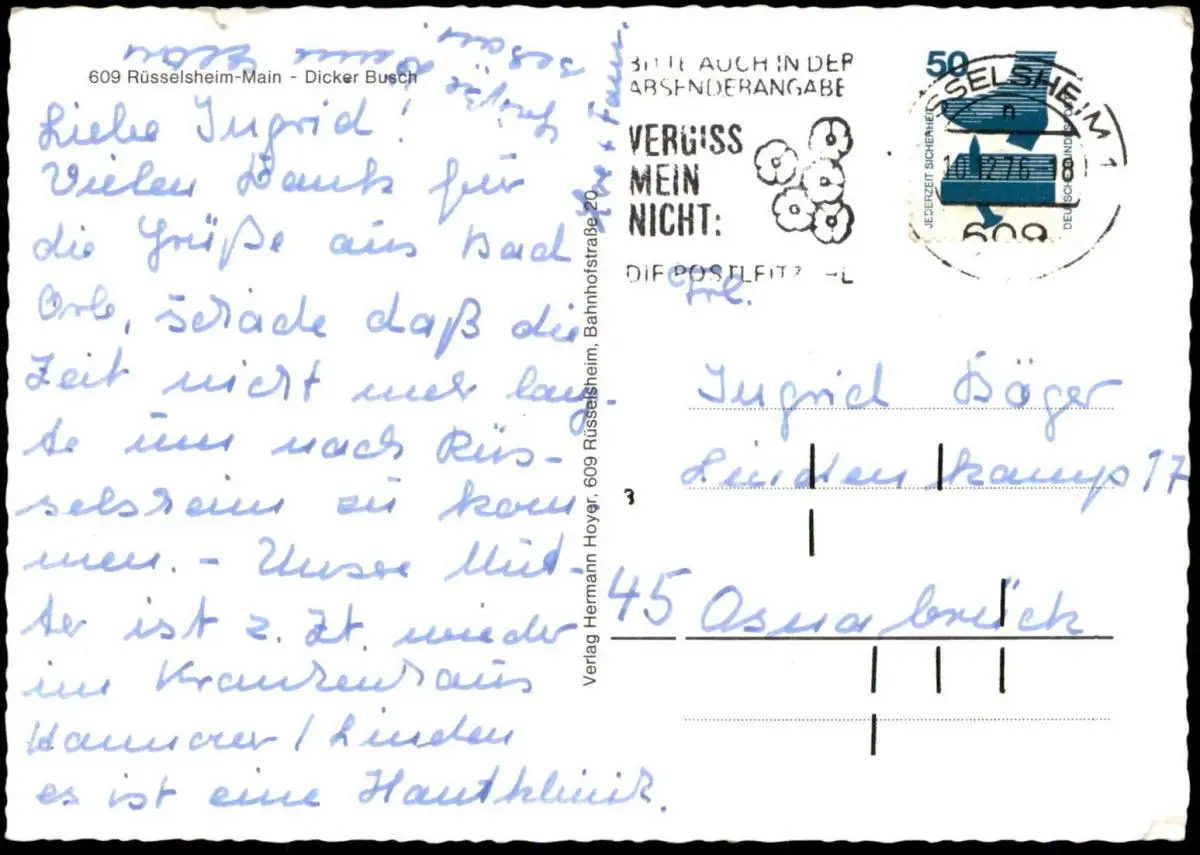 609 Rüsselsheim-Main - Dicker Busch
Liebe Ingrid!
Vielen Dank für
die Grüße aus Bad
Orb, schade daß die
Zeit nicht mehr lang-
te um nach Rüs-
selsheim zu kom
men. - Unsere Mut-
ter ist z. Zt. wieder
im Krankenhaus
Hannover / Linden
es ist eine Hautklinik.
+ Fam.
Verlag Hermann Hoyer, 609 Rüsselsheim, Bahnhofstraße 20
BITTE AUCH IN DER
ABSENDERANGABE
VERGISS
MEIN
NICHT:
DIE POSTLEITZAHL
50
JEDERZEIT SICHERHEIT
DEUTSCHE BUNDESPOST
RÜSSELSHEIM 1
n
10.12.76-18
609
Frl.
Ingrid Böger
Lindenkamp 17
3
45 Osnabrück